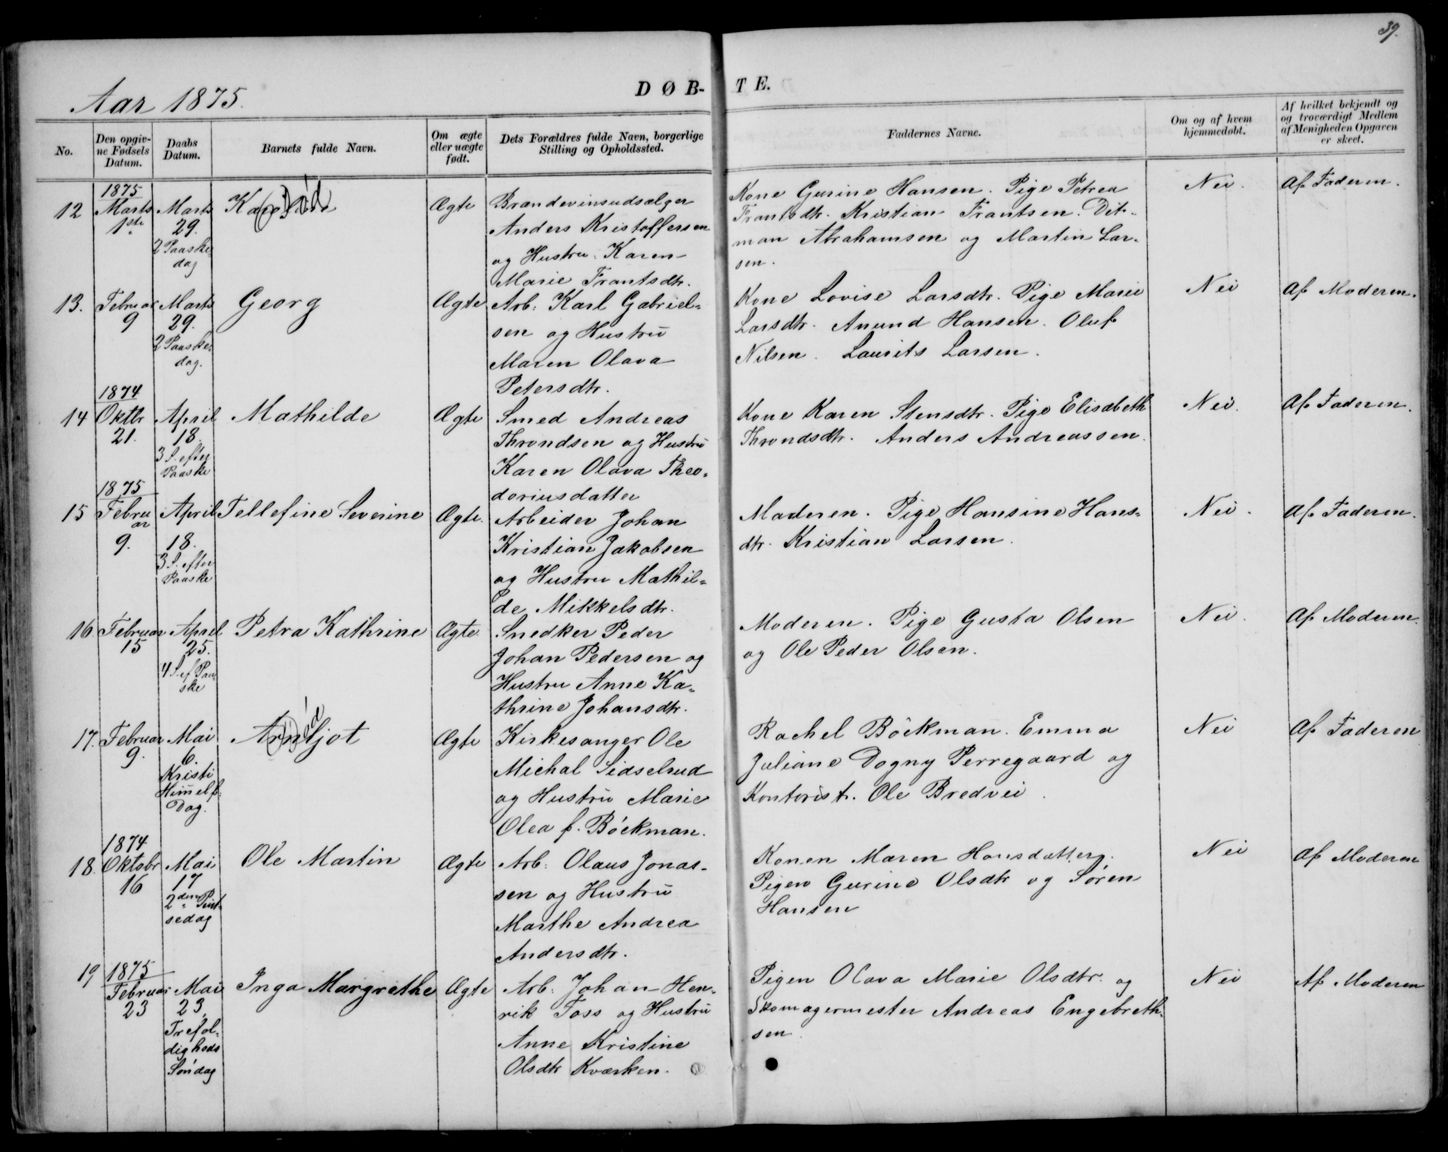 39.
Aar 1875.
DØB-TE.
No.
Den opgivne Fødsels Datum.
Daabs Datum.
Barnets fulde Navn.
Om ægte eller uægte født.
Dets Forældres fulde Navn, borgerlige Stilling og Opholdssted.
Faddernes Navne.
Om og af hvem hjemmedøbt.
Af hvilket bekjendt og og troværdigt Medlem af Menigheden Opgaven er skeet.
12
1875
Marts
1ste
Marts
29.
2 Paaske
dag
Død
Ægte
Brændevinsudsælger
Anders Kristoffersen
og Hustru Karen
Marie Frantsdtr.
Kone Gurine Hansen. Pige Petrea
Frantsdtr. Kristian Frantsen. Dit-
man Abrahamsen og Martin Lar-
sen.
Nei.
Af Faderen.
13.
Februar
9
Marts
29.
2 Paaske
dag.
Georg
Ægte
Arb. Karl Gabriel-
sen og Hustru
Maren Olava
Petersdtr.
Kone Lovise Larsdtr. Pige Marie
Larsdtr. Anund Hansen. Oluf
Nilsen. Laurits Larsen.
Nei
Af Moderen.
14
1874
Oktbr
21.
April
18.
3 S. efter
Paaske
Mathilde
Ægte
Smed Andreas
Throndsen og Hustru
Karen Olava Theo-
doriusdatter
Kone Karen Stensdtr. Pige Elisabeth
Throndsdtr. Anders Andreassen.
Nei.
Af Faderen.
15
1875
Febru
ar
9.
April
18.
3 S. efter
Paaske
Tellefine Severine
Ægte.
Arbeider Johan
Kristian Jakobsen
og Hustru Mathil-
de Mikkelsdtr.
Moderen. Pige Hansine Hans-
dtr. Kristian Larsen.
Nei.
Af Faderen.
16
Februar
15
April
25.
4 S. ef. Paa
ske
Petra Kathrine
Ægte
Snedker Peder
Johan Pedersen og
Hustru Anne Ka-
thrine Johansdtr.
Moderen. Pige Gusta Olsen
og Ole Peder Olsen.
Nei.
Af Moderen.
17.
Februar
9.
Mai
6.
Kristi
Himmelf.
Dag.
Arnljot
Død
Ægte
Kirkesanger Ole
Michal Sidselrud
og Hustru Marie
Olea f. Böckman.
Rachel Böckman. Emma
Juliane Dogny Perregaard og
Kontorist. Ole Bredvei.
Nei
Af Faderen
18.
1874
Oktobr
16
Mai
17
2den Pint
sedag
Ole Martin
Ægte
Arb. Olaus Jonas-
sen og Hustru
Marthe Andrea
Andersdtr.
Konen Maren Hansdatter,
Pigen Gurine Olsdtr og Søren
Hansen
Nei
Af Moderen
19
1875
Februar
23
Mai
23,
Trefol-
digheds
Søndag
Inga Margrethe
Ægte
Arb. Johan Hen-
rik Foss og Hustru
Anne Kristine
Olsdtr Kværken.
Pigen Olava Marie Olsdtr. og
Skomagermester Andreas Engebreth-
sen
Nei
Af Moderen